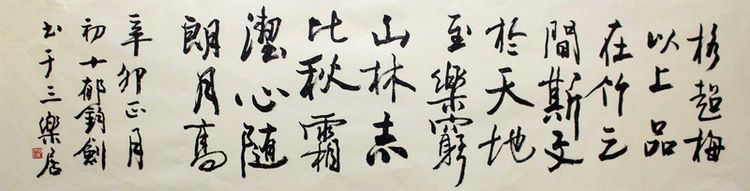 格超梅
以上品
在竹之
間斯文
於天地
至樂窮
山林志
比秋霜
潔心隨
朗月高
辛卯正月
初十郁鈞劍
书于三樂居